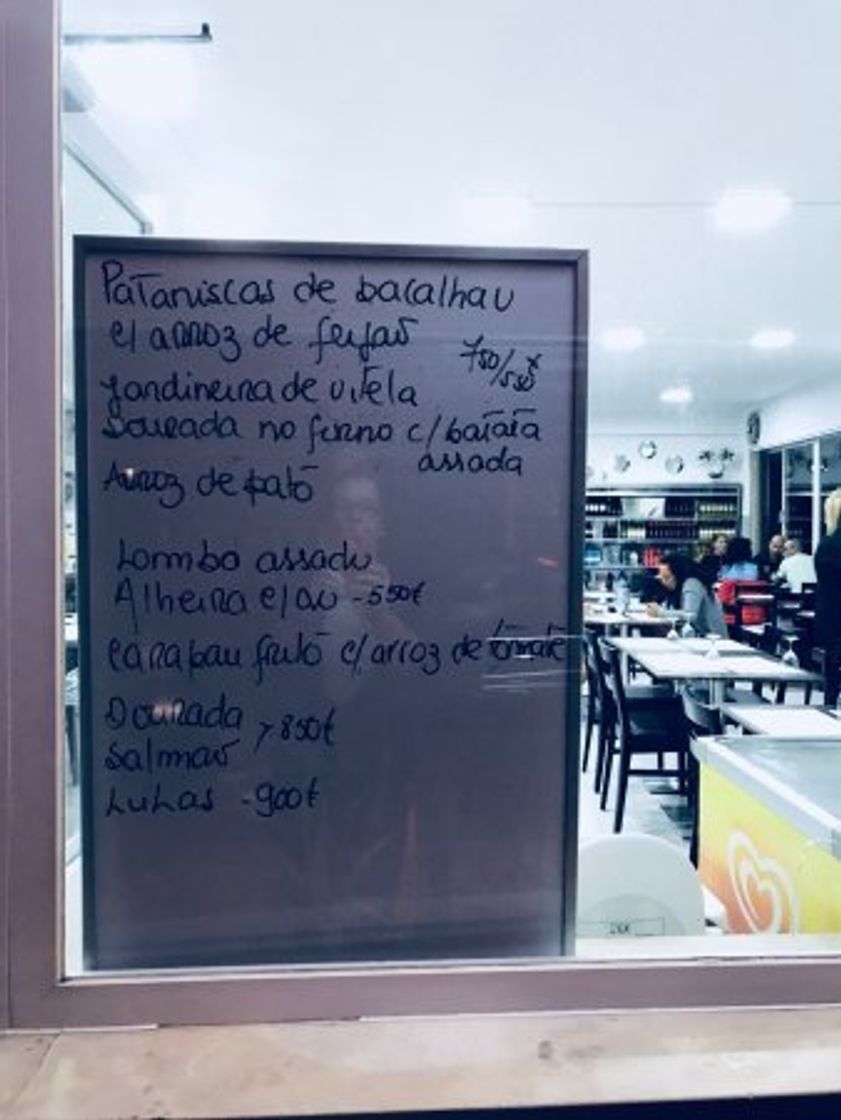 Pataniscas de bacalhau
c/ arroz de feijão
750/550€
Jardineira de vitela
Dourada no forno c/ batata
assada
Arroz de pato
Lombo assado
Alheira c/ ovo - 550€
Carapau frito c/ arroz de tomate
Dourada
> 850€
Salmão
Lulas - 900€